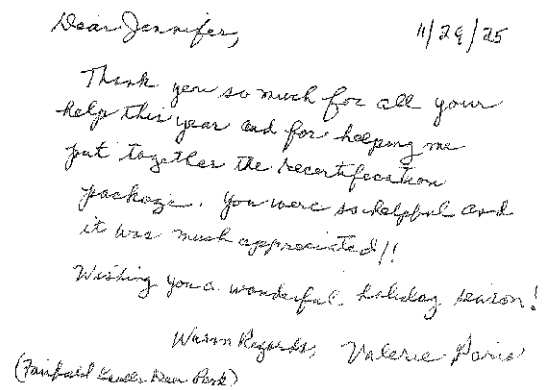 Dear Jennifer, 11/29/25
Thank you so much for all your
help this year and for helping me
put together the recertification
package. You were so helpful and
it was much appreciated!!
Wishing you a wonderful holiday season!
Warm Regards, Valerie